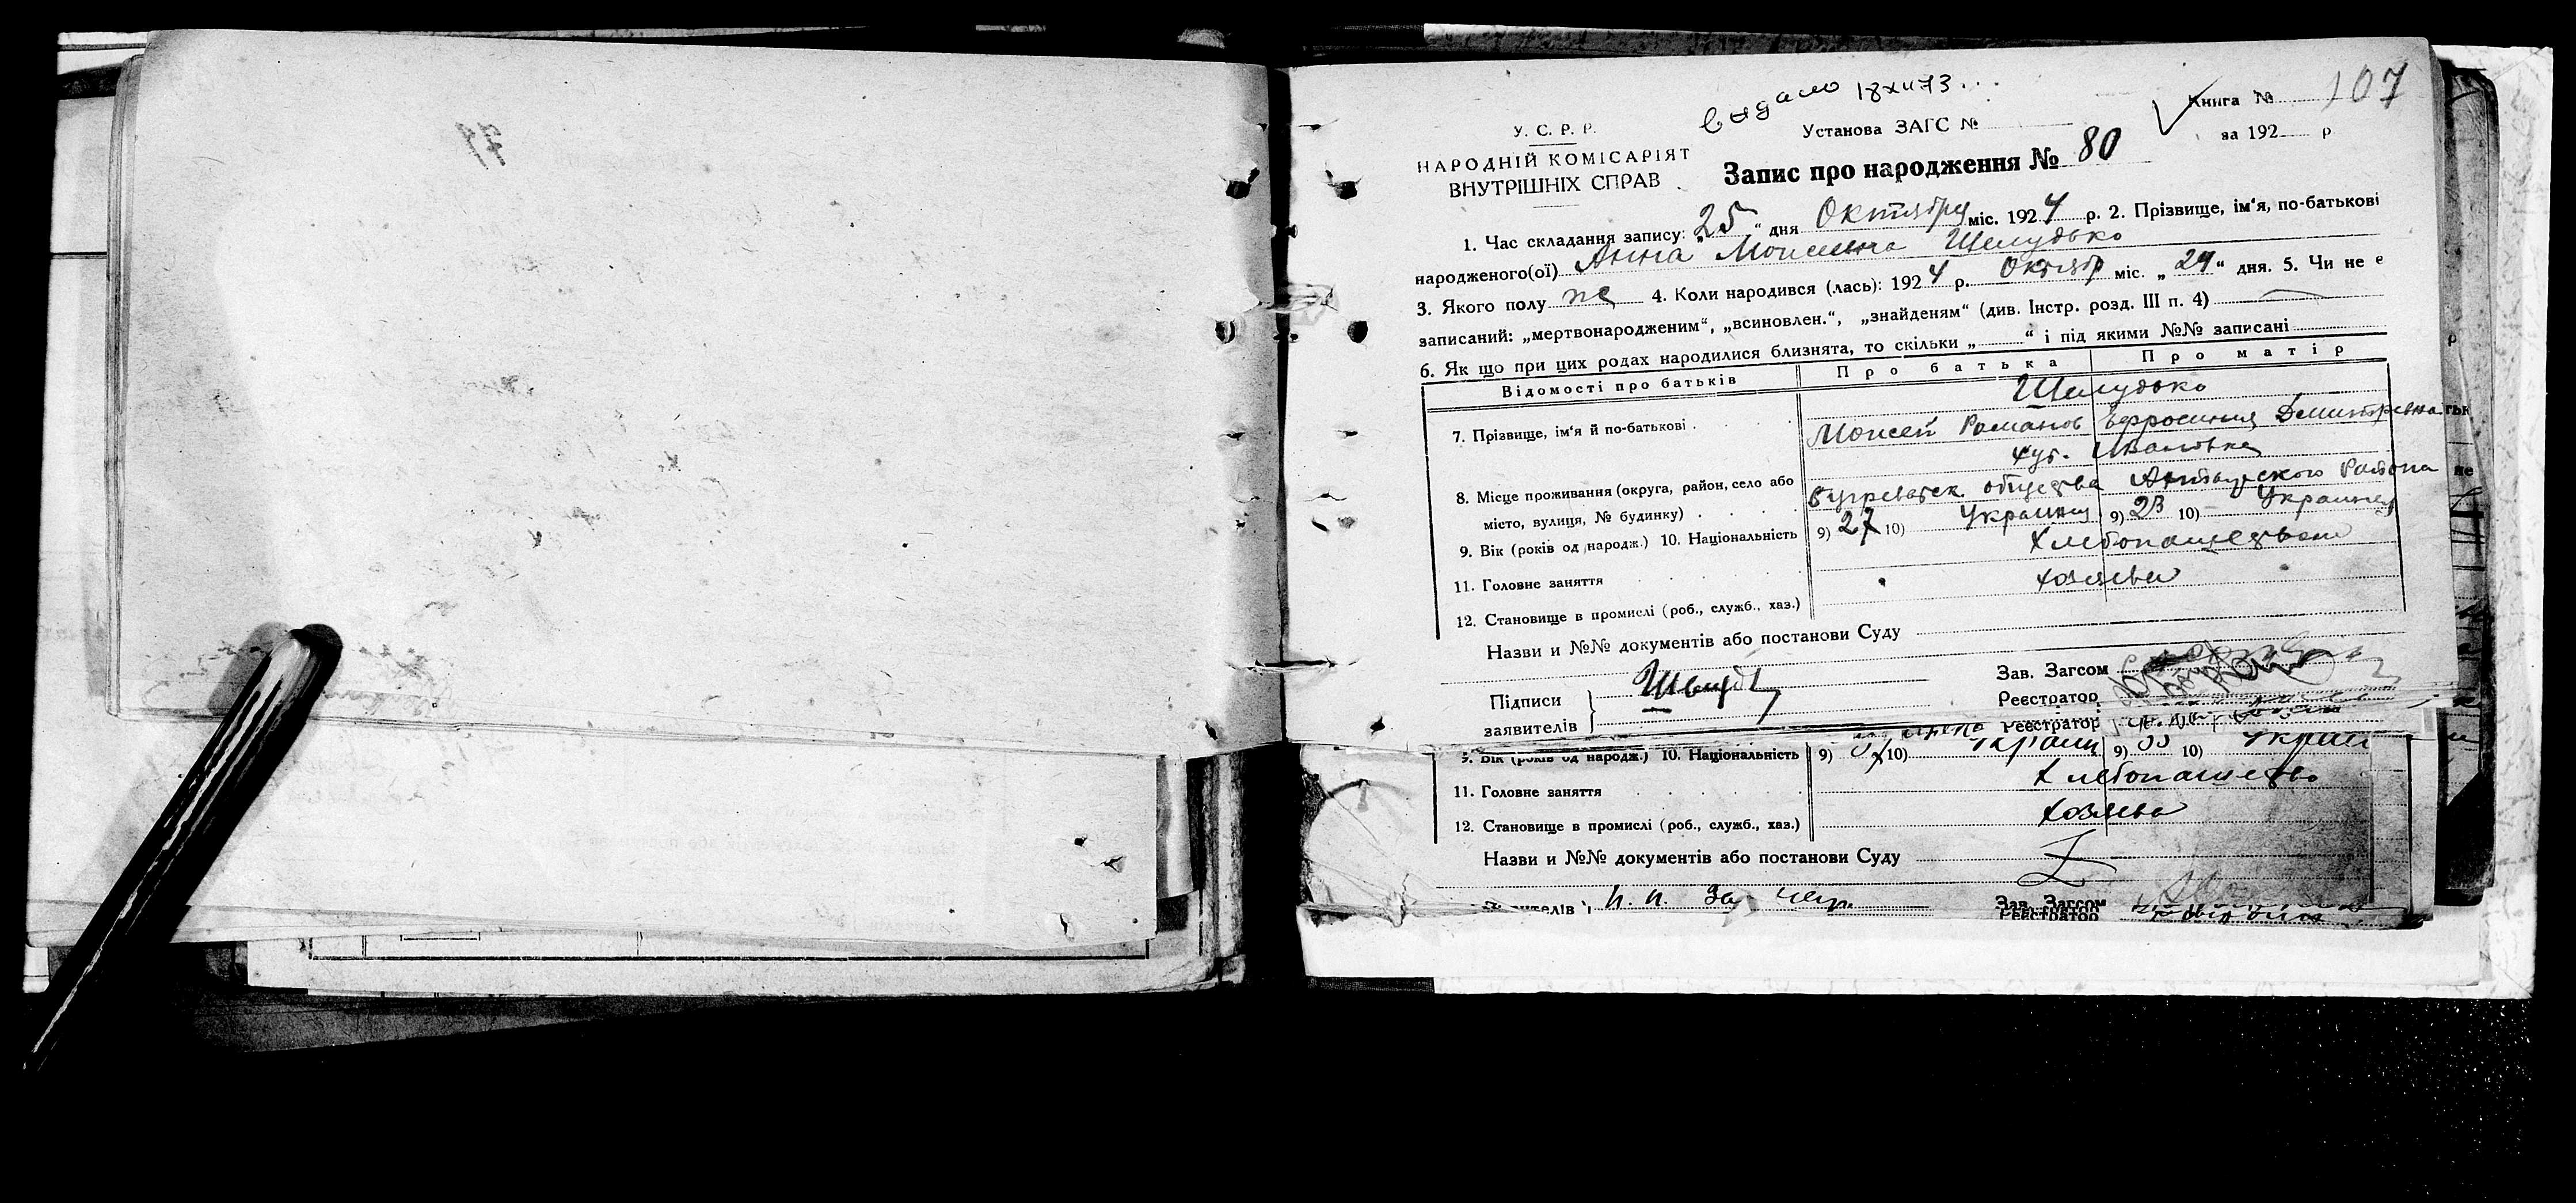 77
видано 18 XII 73
Книга № 107
У. С. Р. Р.
Установа ЗАГС №
за 192 р
НАРОДНІЙ КОМІСАРІЯТ
ВНУТРІШНІХ СПРАВ
Запис про народження № 80
1. Час складання запису: „25“ дня Октября міс. 1924 р. 2. Прізвище, ім'я, по-батькові
народженого(ої) Анна Моисеевна Шелудько
3. Якого полу же 4. Коли народився (лась): 1924 р. Октябр міс. „24“ дня. 5. Чи не є
записаний: „мертвонародженим“, „всиновлен.“, „знайденям“ (див. Інстр. розд. III п. 4)
6. Як що при цих родах народилися близнята, то скільки „ “ і під якими №№ записані
Відомості про батьків Про батька Про матір
Шелудько
7. Прізвище, ім'я й по-батькові Моисей Романов Ефросиния Дмитревна
хут. Ивановка
8. Місце проживання (округа, район, село або общества района
місто, вулиця, № будинку)
9. Вік (років од народж.) 10. Національність 9) 27 10) Украинец 9) 23 10) Украинец
11. Головне заняття Хлебопашеством
12. Становище в промислі (роб., служб., хаз.) хозяева
Назви и №№ документів або постанови Суду
Зав. Загсом
Підписи
Реєстратор
заявителів
Реєстратор
9. Вік (років од народж.) 10. Національність 9) 10) Украин 9) 10) Украин
11. Головне заняття Хлебопашество
12. Становище в промислі (роб., служб., хаз.) хозяева
Назви и №№ документів або постанови Суду
заявителів н. п. за негр.
Зав. Загсом
Реєстратор